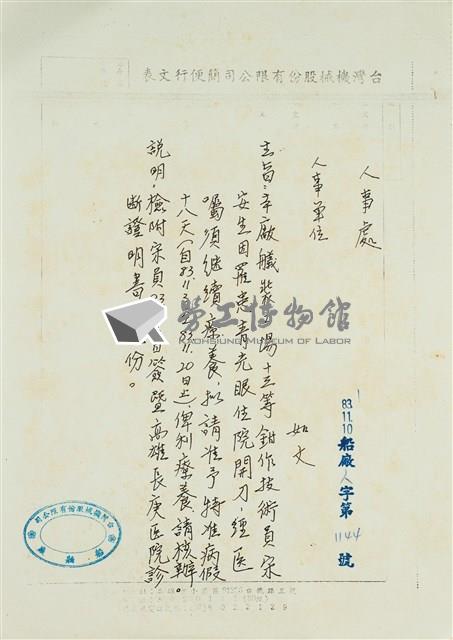 台灣機械股份有限公司簡便行文表
人事處
人事單位
如文
83.11.10
船廠人字第1144號
主旨：本廠艤裝工場十三等鉗作技術員宋
安生因罹患青光眼住院開刀，經医
囑須継續療養，拟請准予特准病假
十八天（自83.11.3至83.11.20日止）俾利療養，請核辦。
說明：檢附宋員簽暨高雄長庚医院診
断證明書份。
勞工博物館
KAOHSIUNG MUSEUM OF LABOR
台灣機械股份有限公司